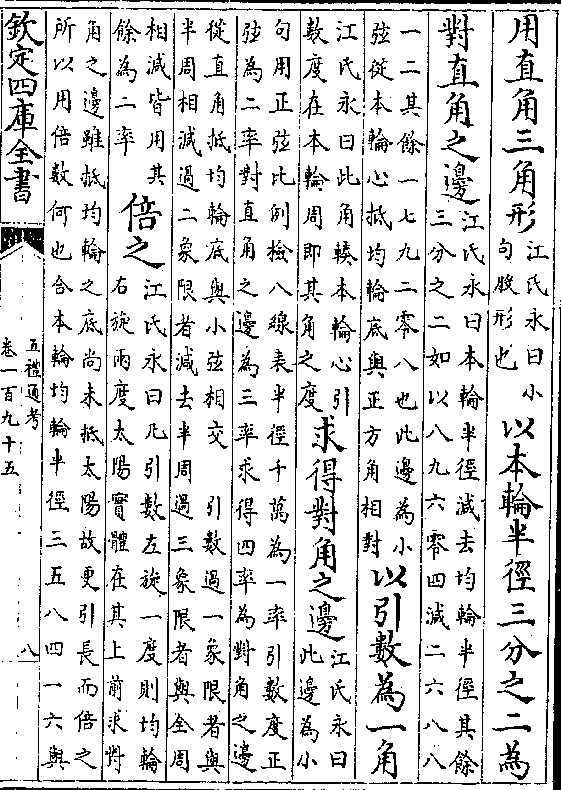 用直角三角形江氏永曰小
句股形也以本輪半徑三分之二為
對直角之邊江氏永曰本輪半徑減去均輪半徑其餘
三分之二如以八九六零四減二六八八
一二其餘一七九二零八也此邊為小
弦從本輪心抵均輪底與正方角相對以引數為一角
江氏永曰此角輳本輪心引
數度在本輪周即其角之度求得對角之邊江氏永曰
此邊為小
句用正弦比例檢八線表半徑千萬為一率引數度正
弦為二率對直角之邊為三率求得四率為對角之邊
從直角抵均輪底與小弦相交 引數過一象限者與
半周相減過二象限者減去半周過三象限者與全周
相減皆用其
餘為二率倍之江氏永曰凡引數左旋一度則均輪
右旋兩度太陽實體在其上前求對
角之邊雖抵均輪之底尚未抵太陽故更引長而倍之
所以用倍數何也合本輪均輪半徑三五八四一六與
欽定四庫全書
五禮通考
卷一百九十五
八